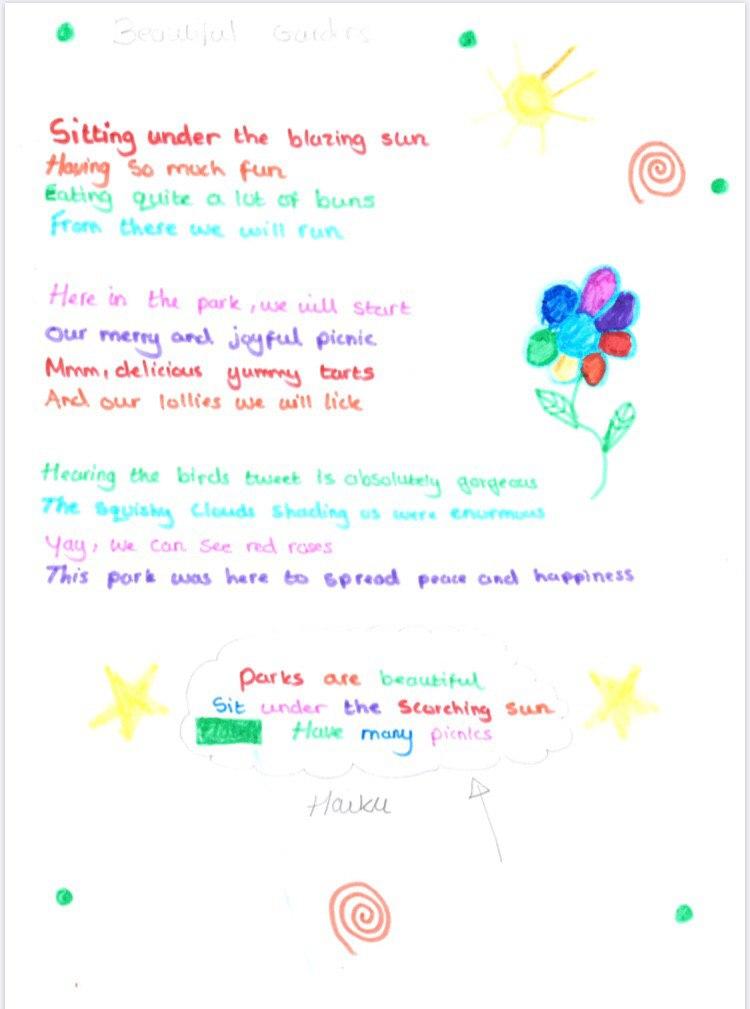 Beautiful Gardens
Sitting under the blazing sun
Having so much fun
Eating quite a lot of buns
From there we will run
Here in the park, we will start
Our merry and joyful picnic
Mmm, delicious yummy tarts
And our lollies we will lick
Hearing the birds tweet is absolutely gorgeous
The squishy clouds shading us were enormous
Yay, we can see red roses
This park was here to spread peace and happiness
Parks are beautiful
Sit under the scorching sun
Have many picnics
Haiku